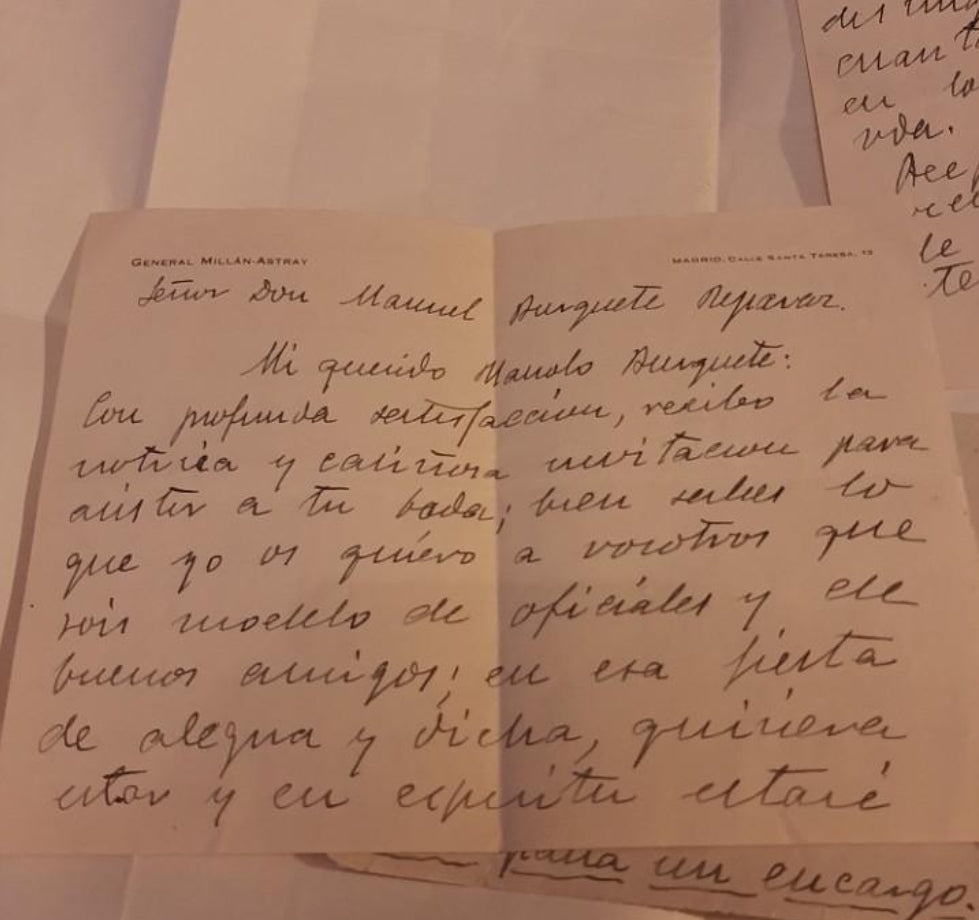 GENERAL MILLÁN-ASTRAY
MADRID. CALLE SANTA TERESA, 13
Señor Don Manuel Burguete Reparaz.
Mi querido Manolo Burguete:
Con profunda satisfaccion, recibo la
noticia y cariñosa invitacion para
asistir a tu boda; bien sabes lo
que yo os quiero a vosotros que
sois modelo de oficiales y de
buenos amigos; en esa fiesta
de alegria y dicha, quisiera
estar y en espiritu estaré
en
vida.
le
te
para un encargo.